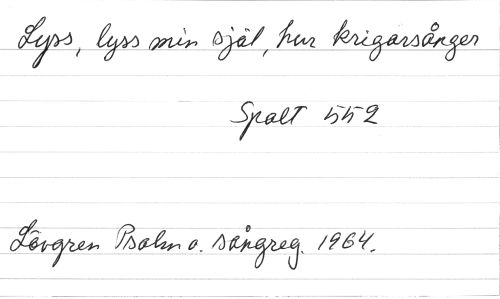 Lyss, lyss min själ, hur krigarsånger
Spalt 552
Lövgren Psalm o. sångreg. 1964.